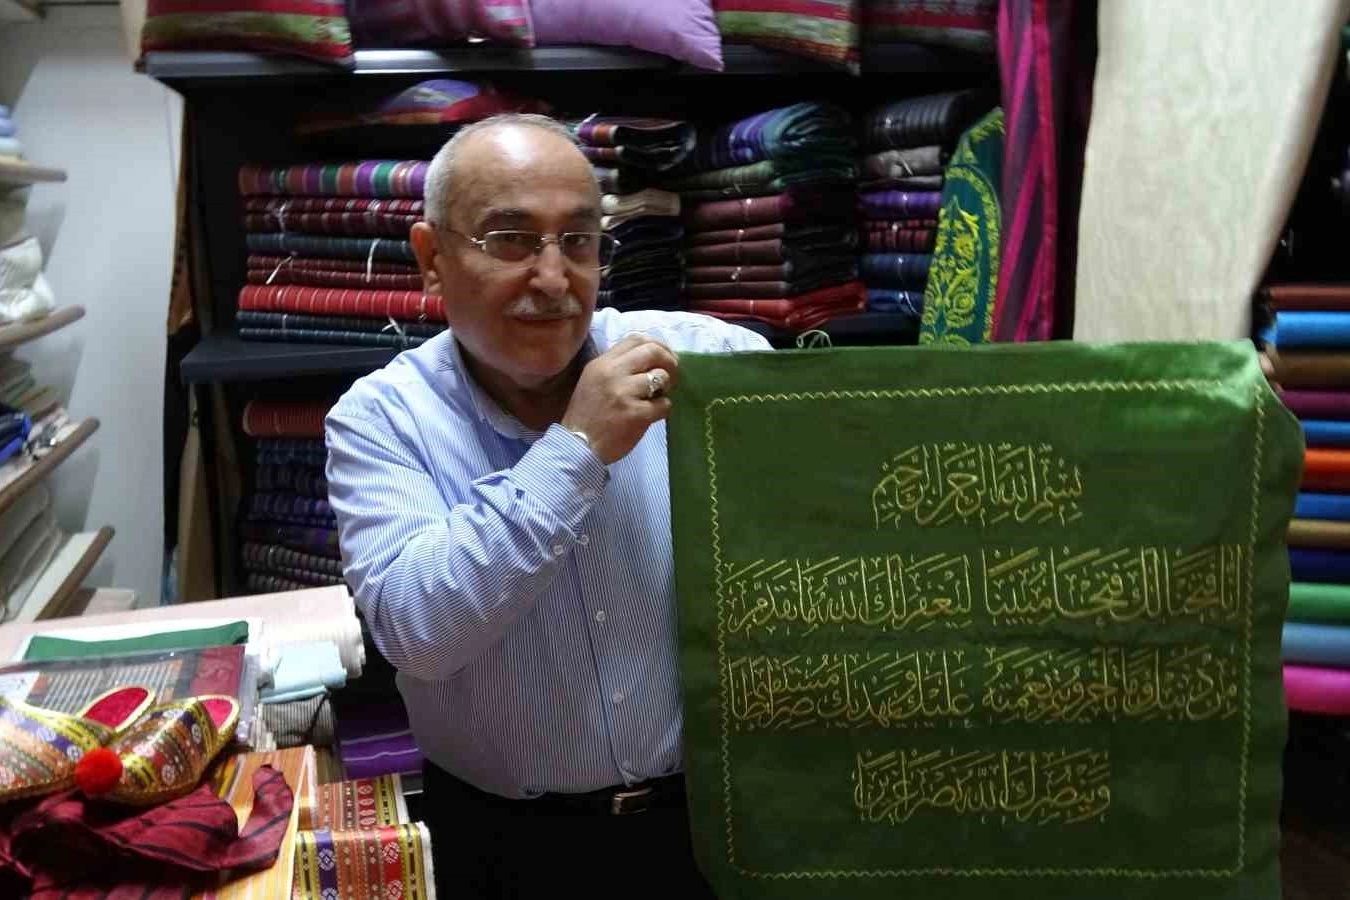 بِسْمِ اللّٰهِ الرَّحْمٰنِ الرَّحِيْمِ
اِنَّا فَتَحْنَا لَكَ فَتْحًا مُبِيْنًا لِيَغْفِرَ لَكَ اللّٰهُ مَا تَقَدَّمَ
مِنْ ذَنْبِكَ وَمَا تَأَخَّرَ وَيُتِمَّ نِعْمَتَهُ عَلَيْكَ وَيَهْدِيَكَ صِرَاطًا مُسْتَقِيْمًا
وَيَنْصُرَكَ اللّٰهُ نَصْرًا عَزِيْزًا